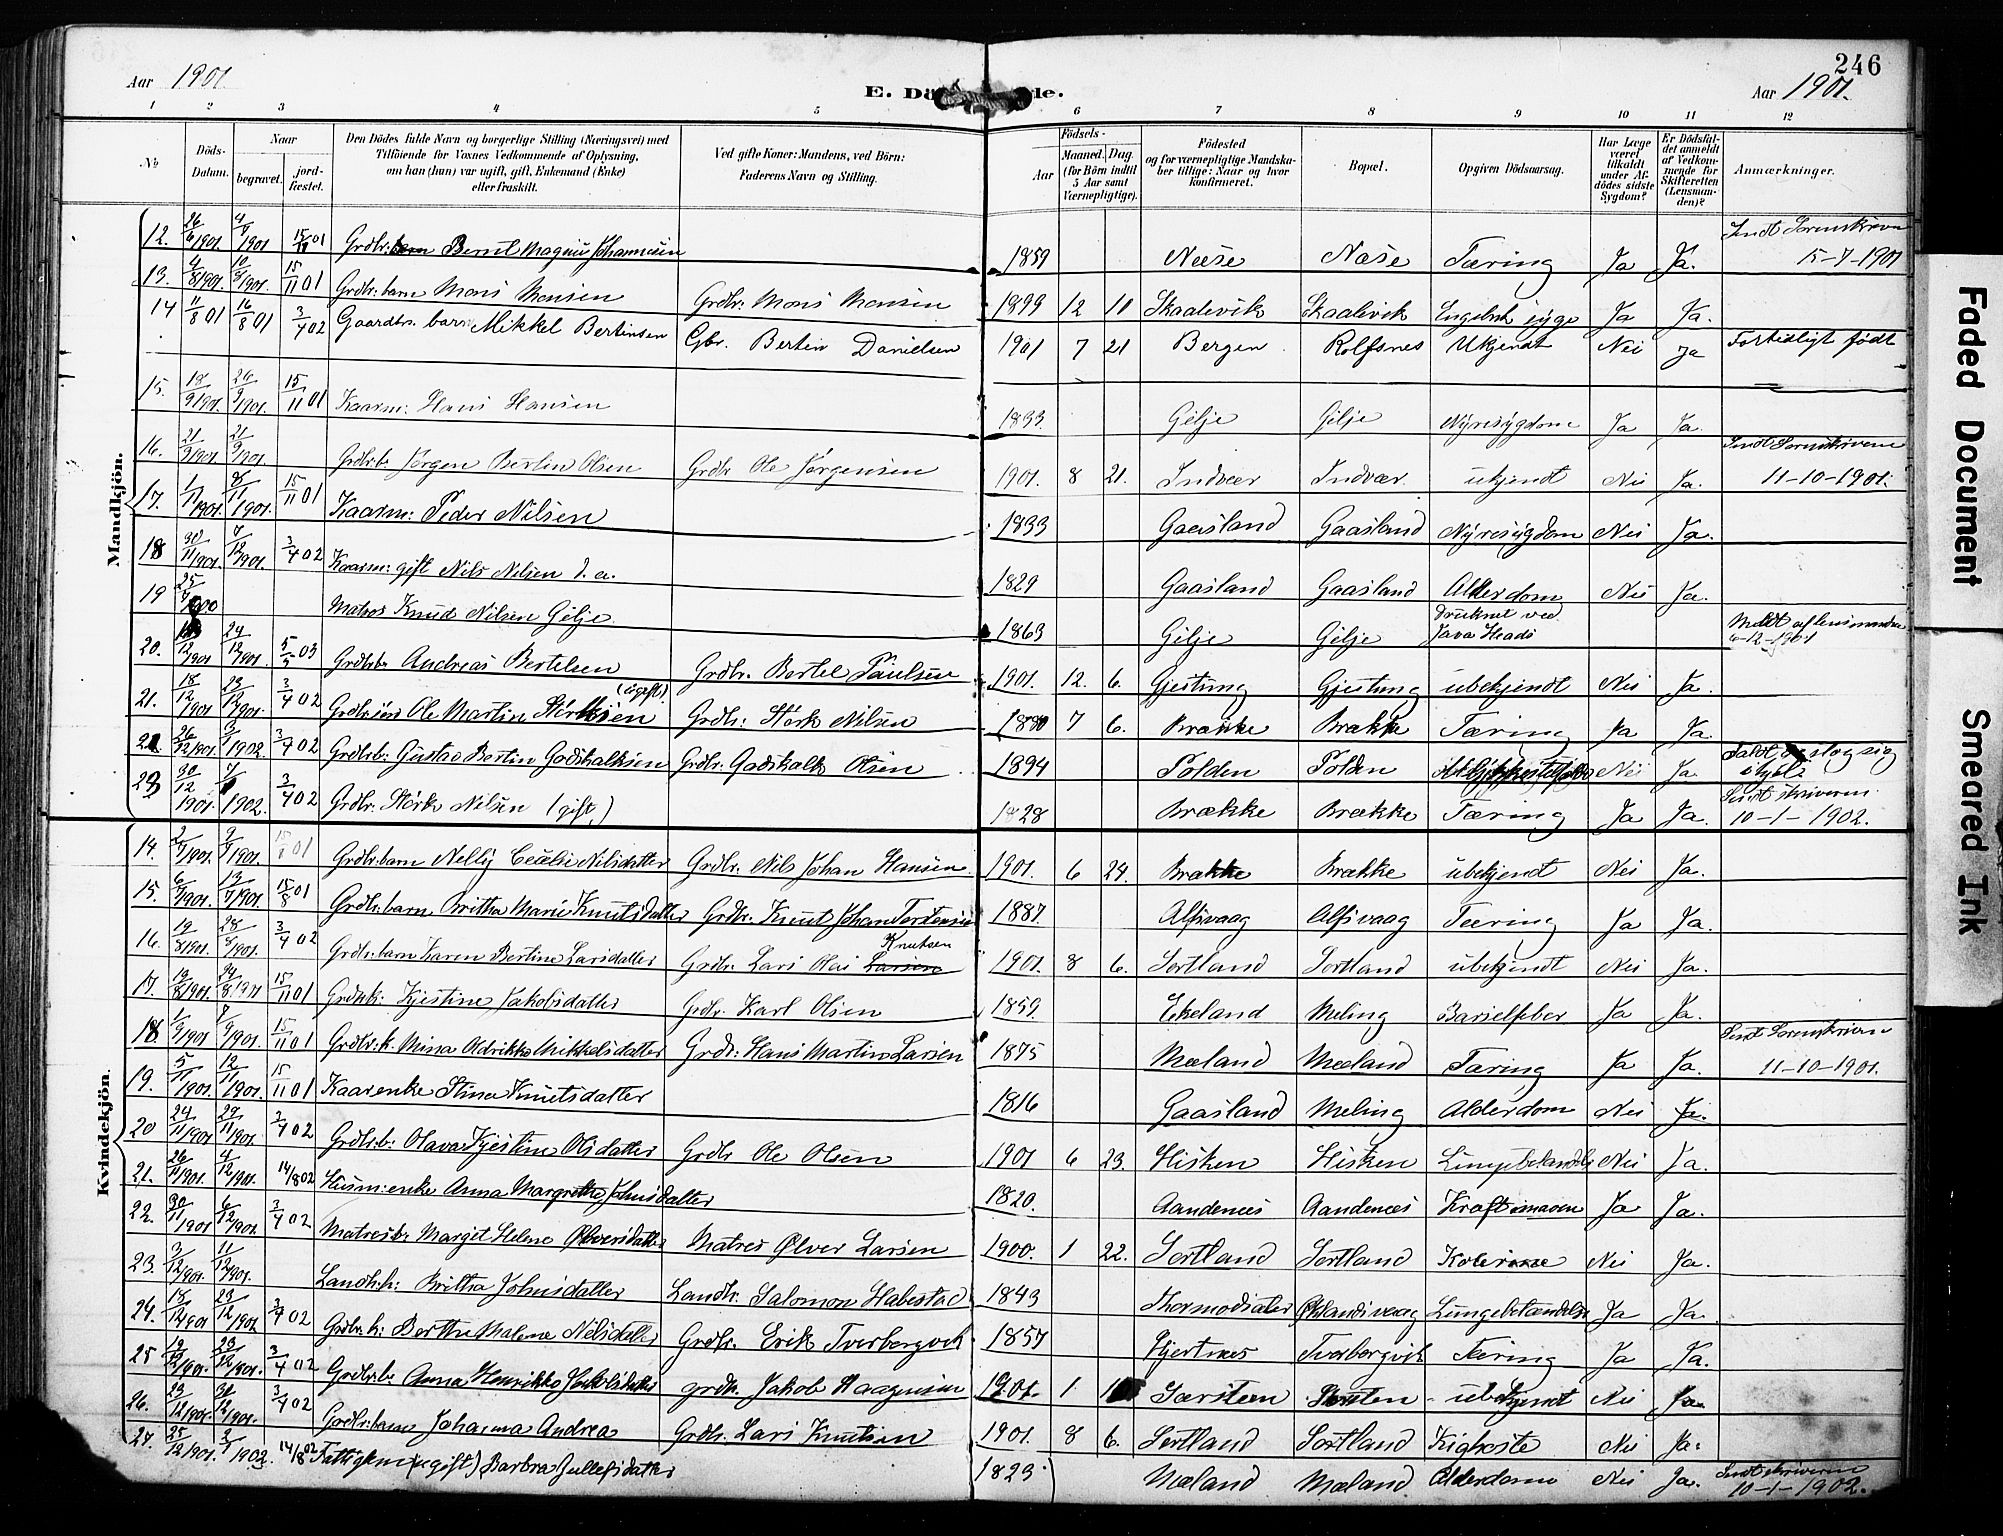 246
Aar 1901. E. Dö de. Aar 1901.
1 2 3 4 5 6 7 8 9 10 11 12
No
Döds-Datum.
Naar
begravet.
jord-fæstet.
Den Dödes fulde Navn og borgerlige Stilling (Næringsvei) med
Tilföiende for Voxnes Vedkommende af Oplysning,
om han (hun) var ugift, gift, Enkemand (Enke)
eller fraskilt.
Ved gifte Koner: Mandens, ved Börn:
Faderens Navn og Stilling.
Födsels-
Aar
Maaned. Dag.
(for Börn indtil
5 Aar samt
Værnepligtige).
Födested
og for værnepligtige Mandska-
ber tillige: Naar og hvor
konfirmeret.
Bopæl.
Opgiven Dödsaarsag.
Har Læge
været
tilkaldt
under Af-
dödes sidste
Sygdom?
Er Dödsfal-
det anmeldt
af Vedkom-
mende for
Skifteretten
(Lensman-
den)?
Anmærkninger.
Mandkjön.
12. 26/6 1901 4/7 1901 15/11 01 Grdbr: Bernt Magnus Johannesen 1859 Næse Næse Tæring Ja Ja. Indt Sorenskriven 15-7-1901
13. 4/8 1901. 10/8 1901. 15/11 01 Grdbr: barn Mons Monsen Grdbr: Mons Monsen 1899 12 10 Skaalevik Skaalevik Engelsk syge Ja Ja.
14 11/8 01 16/8 01 3/4 02 Gaardbr. barn Mikkel Bertinsen Gbr. Bertin Danielsen 1901 7 21 Bergen Rolfsnes Ukjendt Nei Ja Fortidligt født
15. 18/9 1901. 26/9 1901. 15/11 01 Kaarm: Hans Hansen 1833 Gilje Gilje Nyresygdom Ja Ja.
16. 21/9 1901. 21/9 1901. Grdbrb Jørgen Bertin Olsen Grdbr Ole Jørgensen 1901. 8 21. Indvær Indvær ukjendt Nei Ja. Indt Sorenskriveren 11-10-1901.
17. 1/11 1901 8/11 1901. 15/11 01 Kaarm: Peder Nilsen 1833 Gaasland Gaasland Nyresygdom Nei Ja.
18 30/11 1901. 7/12 1901. 3/4 02 Kaarm: gift Nils Nilsen d. æ. 1829 Gaasland Gaasland Alderdom Nei Ja.
19 25/ 1900 Matros Knud Nilsen Gilje 1863 Gilje Gilje Druknet ved Java Heads Meldt af lensmanden 6-12-1901
20. 12/1901 24/12 1901. 5/5 03 Grdbrb: Andreas Bertelsen Grdbr. Bertel Paulsen 1901. 12. 6. Gjestung Gjestung ubekjendt Nei Ja.
21. 18/12 1901 23/12 1901. 3/4 02 Grdbrsøn Ole Martin Størksen (ugift). Grdbr: Størk Nilsen 1880 7 6. Brække Brække Tæring Ja Ja.
22 26/12 1901. 3/1 1902. 3/4 02 Grdbrb: Gustav Bertin Godskalksen Grdbr. Godskalk Olsen 1894 Tolden Tolden Nei Ja Faldt og slog sig ihjel
23 30/12 1901. 1902. 3/4 02 Grdbr: Størk Nilsen (gift) 1828 Brække Brække Tæring Ja Ja. Indt skriveren 10-1-1902.
Kvindekjön.
14. 2/7 1901. 9/7 1901. 15/ 01 Grdbr:barn Nelly Cecelie Nilsdatter Grdbr. Nils Johan Hansen 1901. 6 24. Brække Brække ubekjendt Nei Ja.
15. 6/7 1901. 13/7 1901. 15/8 01 Grdbr: barn Britha Marie Knutsdatter Grdbr: Knut Johan Torstensen 1887. Alfsvaag Alfsvaag Tæring Ja Ja.
16. 19/8 1901. 28/8 1901. 3/4 02 Grdbr: barn Karen Bertine Larsdatter Grdbr: Lars Olai Larsen Knutsen 1901. 8 6. Sortland Sortland ubekjendt Nei Ja.
17. 19/8 1901. 24/8 1901 15/11 01 Grdbrk: Kjestine Jakobsdatter Grdbr. Karl Olsen 1859. Ekeland Meling Barselfeber Ja Ja.
18 1/9 1901 8/9 1901. 15/11 01 Grdbr: k. Mina Aldrikke Mikkelsdatter Grdbr: Hans Martin Larsen 1875 Mæland Mæland Tæring Ja Ja. Indt Sorenskriven 11-10-1901.
19. 5/11 1901. 12/11 1901. 15/11 01 Kaarenke Stina Knutsdatter 1816 Gaasland Meling Alderdom Nei Ja.
20 24/11 1901 29/11 1901. 3/4 02 Grdbr:b: Olava Kjestine Olsdatter Grdbr Ole Olsen 1901 6 23. Hisken Hisken Lungebetændelse Nei Ja.
21. 26/11 1901. 4/12 1901. 14/8 02 Husm: enke Anna Margrethe Johnsdatter 1820. Aandenæs Aandenæs Kraft i maven Ja Ja.
22. 30/11 1901 6/12 1901. 3/4 02 Matrosb: Marget Helene Ølversdatter Matros Ølver Larsen 1900. 1 22. Sortland Sortland Kolerine Nei Ja.
23. 3/12 1901. 11/12 1901. Landh.k: Britha Johnsdatter Landh. Salomon Habestad 1843 Thormodsæter Lungebetændelse Ja Ja.
24. 18/12 1901 23/12 1901 3/4 02 Grdbr:k: Berthe Malene Nilsdatter Grdbr. Erik Tverborgvik 1857 Hjertnes Tverborgvik Tæring Ja Ja.
25 19/12 1901. 23/12 1901. 3/4 02 Grdbr:b: Anna Henrikke Jakobsdatter grdbr. Jakob Haagensen 1901. 1 Særsteen ubekjendt Nei Ja.
26. 23/12 1901. 31/12 1901. 3/4 02 Grdbr: barn Johanna Andrea Grdbr: Lars Knutsen 1901. 8 6. Sortland Sortland Kighoste Nei Ja.
27. 25/12 1901. 2/1 1902. 14/8 02 Fattiglem (ugift) Barbra Jellefsdatter 1823 Mæland Mæland Alderdom Nei Ja. Indt skriveren 10-1-1902.
Faded Document
Smeared Ink